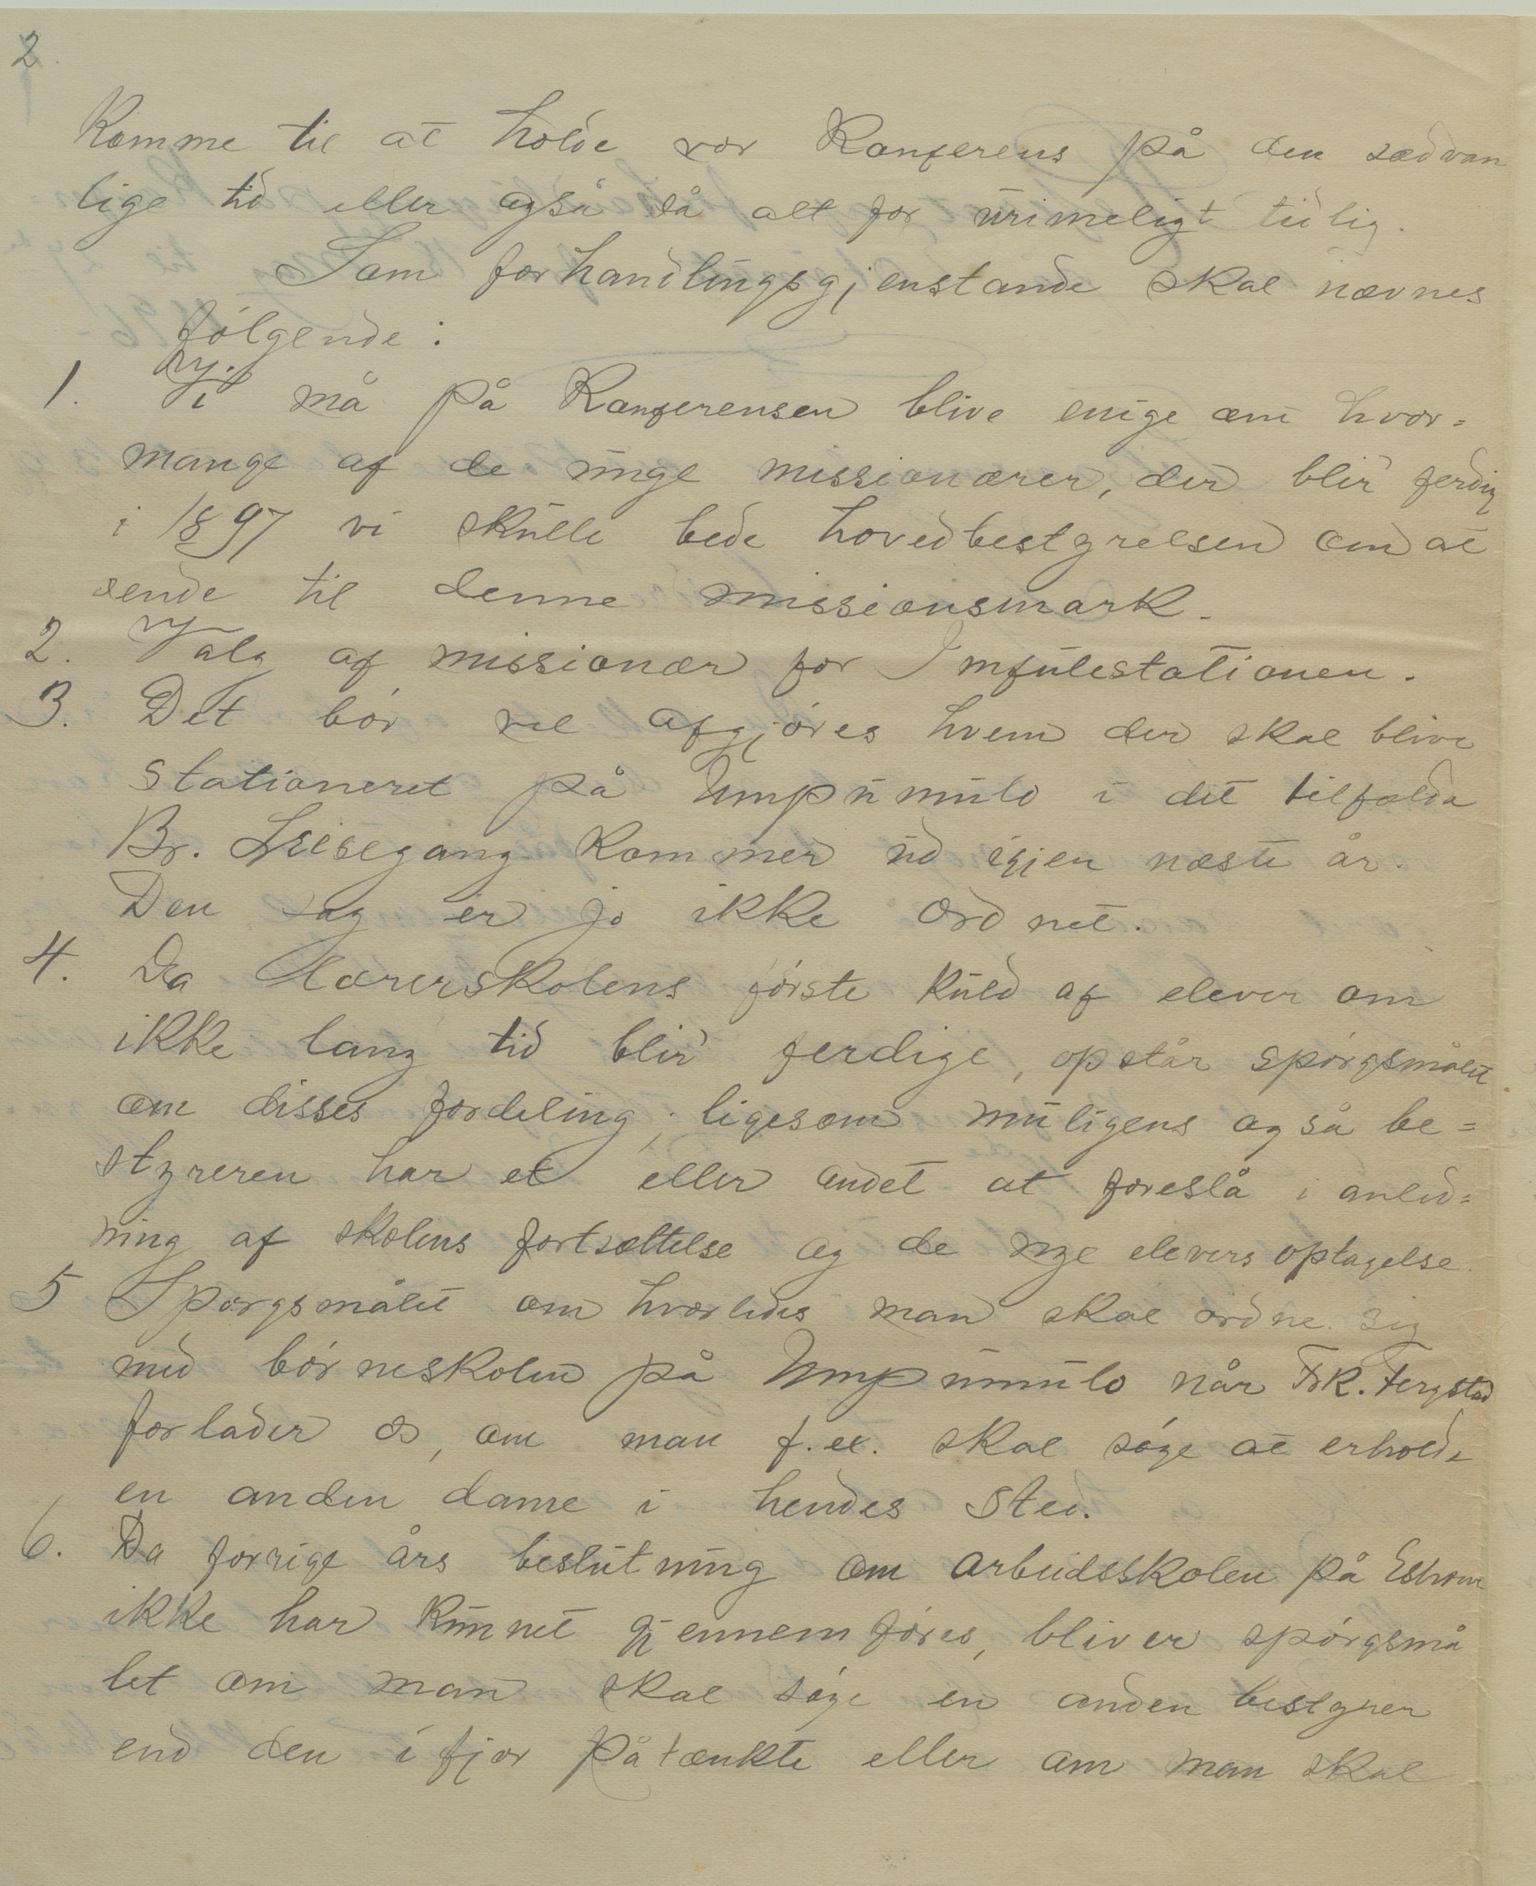 2.
Komme til at holde vor Konferens på den sædvan
lige tid eller også så alt for urimeligt tidlig.
Som forhandlingsgjenstande skal nævnes
følgende:
1. Vi må på Konferensen blive enige om hvor=
mange af de unge missionærer, der blir ferdig
i 1897 vi skulle bede hovedbestyrelsen om at
sende til denne missionsmark.
2. Valg af missionær for Imfulestationen.
3. Det bør vel afgjøres hvem der skal blive
stationeret på Umpumulo i det tilfælde
Br. Leisegang kommer ud igjen næste år.
Den sag er jo ikke ordnet.
4. Da Lærerskolens første kuld af elever om
ikke lang tid blir ferdige, opstår spørgsmålet
om disses fordeling, ligesom muligens også be=
styreren har et eller andet at foreslå i anled=
ning af skolens fortsættelse og de nye elevers optagelse.
5 Spørgsmålet om hvorledes man skal ordne sig
med børneskolen på Umpumulo når Frk. Fergstad
forlader os, om man f. ex. skal søge at erholde
en anden dame i hendes sted.
6. Da forrige års beslutning om arbeidsskolen på Eshowe
ikke har kunnet gjennemføres, bliver spørgsmå
let om man skal søge en anden bestyrer
end den i fjor påtænkte eller om man skal